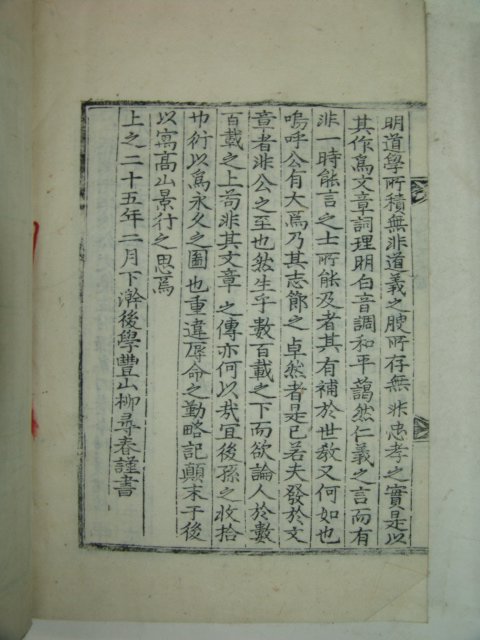 明道學所積無非道義之腴所存無非忠孝之實是以
其作爲文章詞理明白音調和平藹然仁義之言而有
非一時能言之士所能及者其有補於世敎又何如也
嗚呼公有大焉乃其志節之卓然者是已若夫發於文
章者非公之至也然生乎數百載之下而欲論人於數
百載之上苟非其文章之傳亦何以哉宜後孫之收拾
也衍以爲永久之圖也重違辱命之勤略記顚末于後
以寓高山景行之思焉
上之二十五年二月下澣後學豐山柳尋春謹書